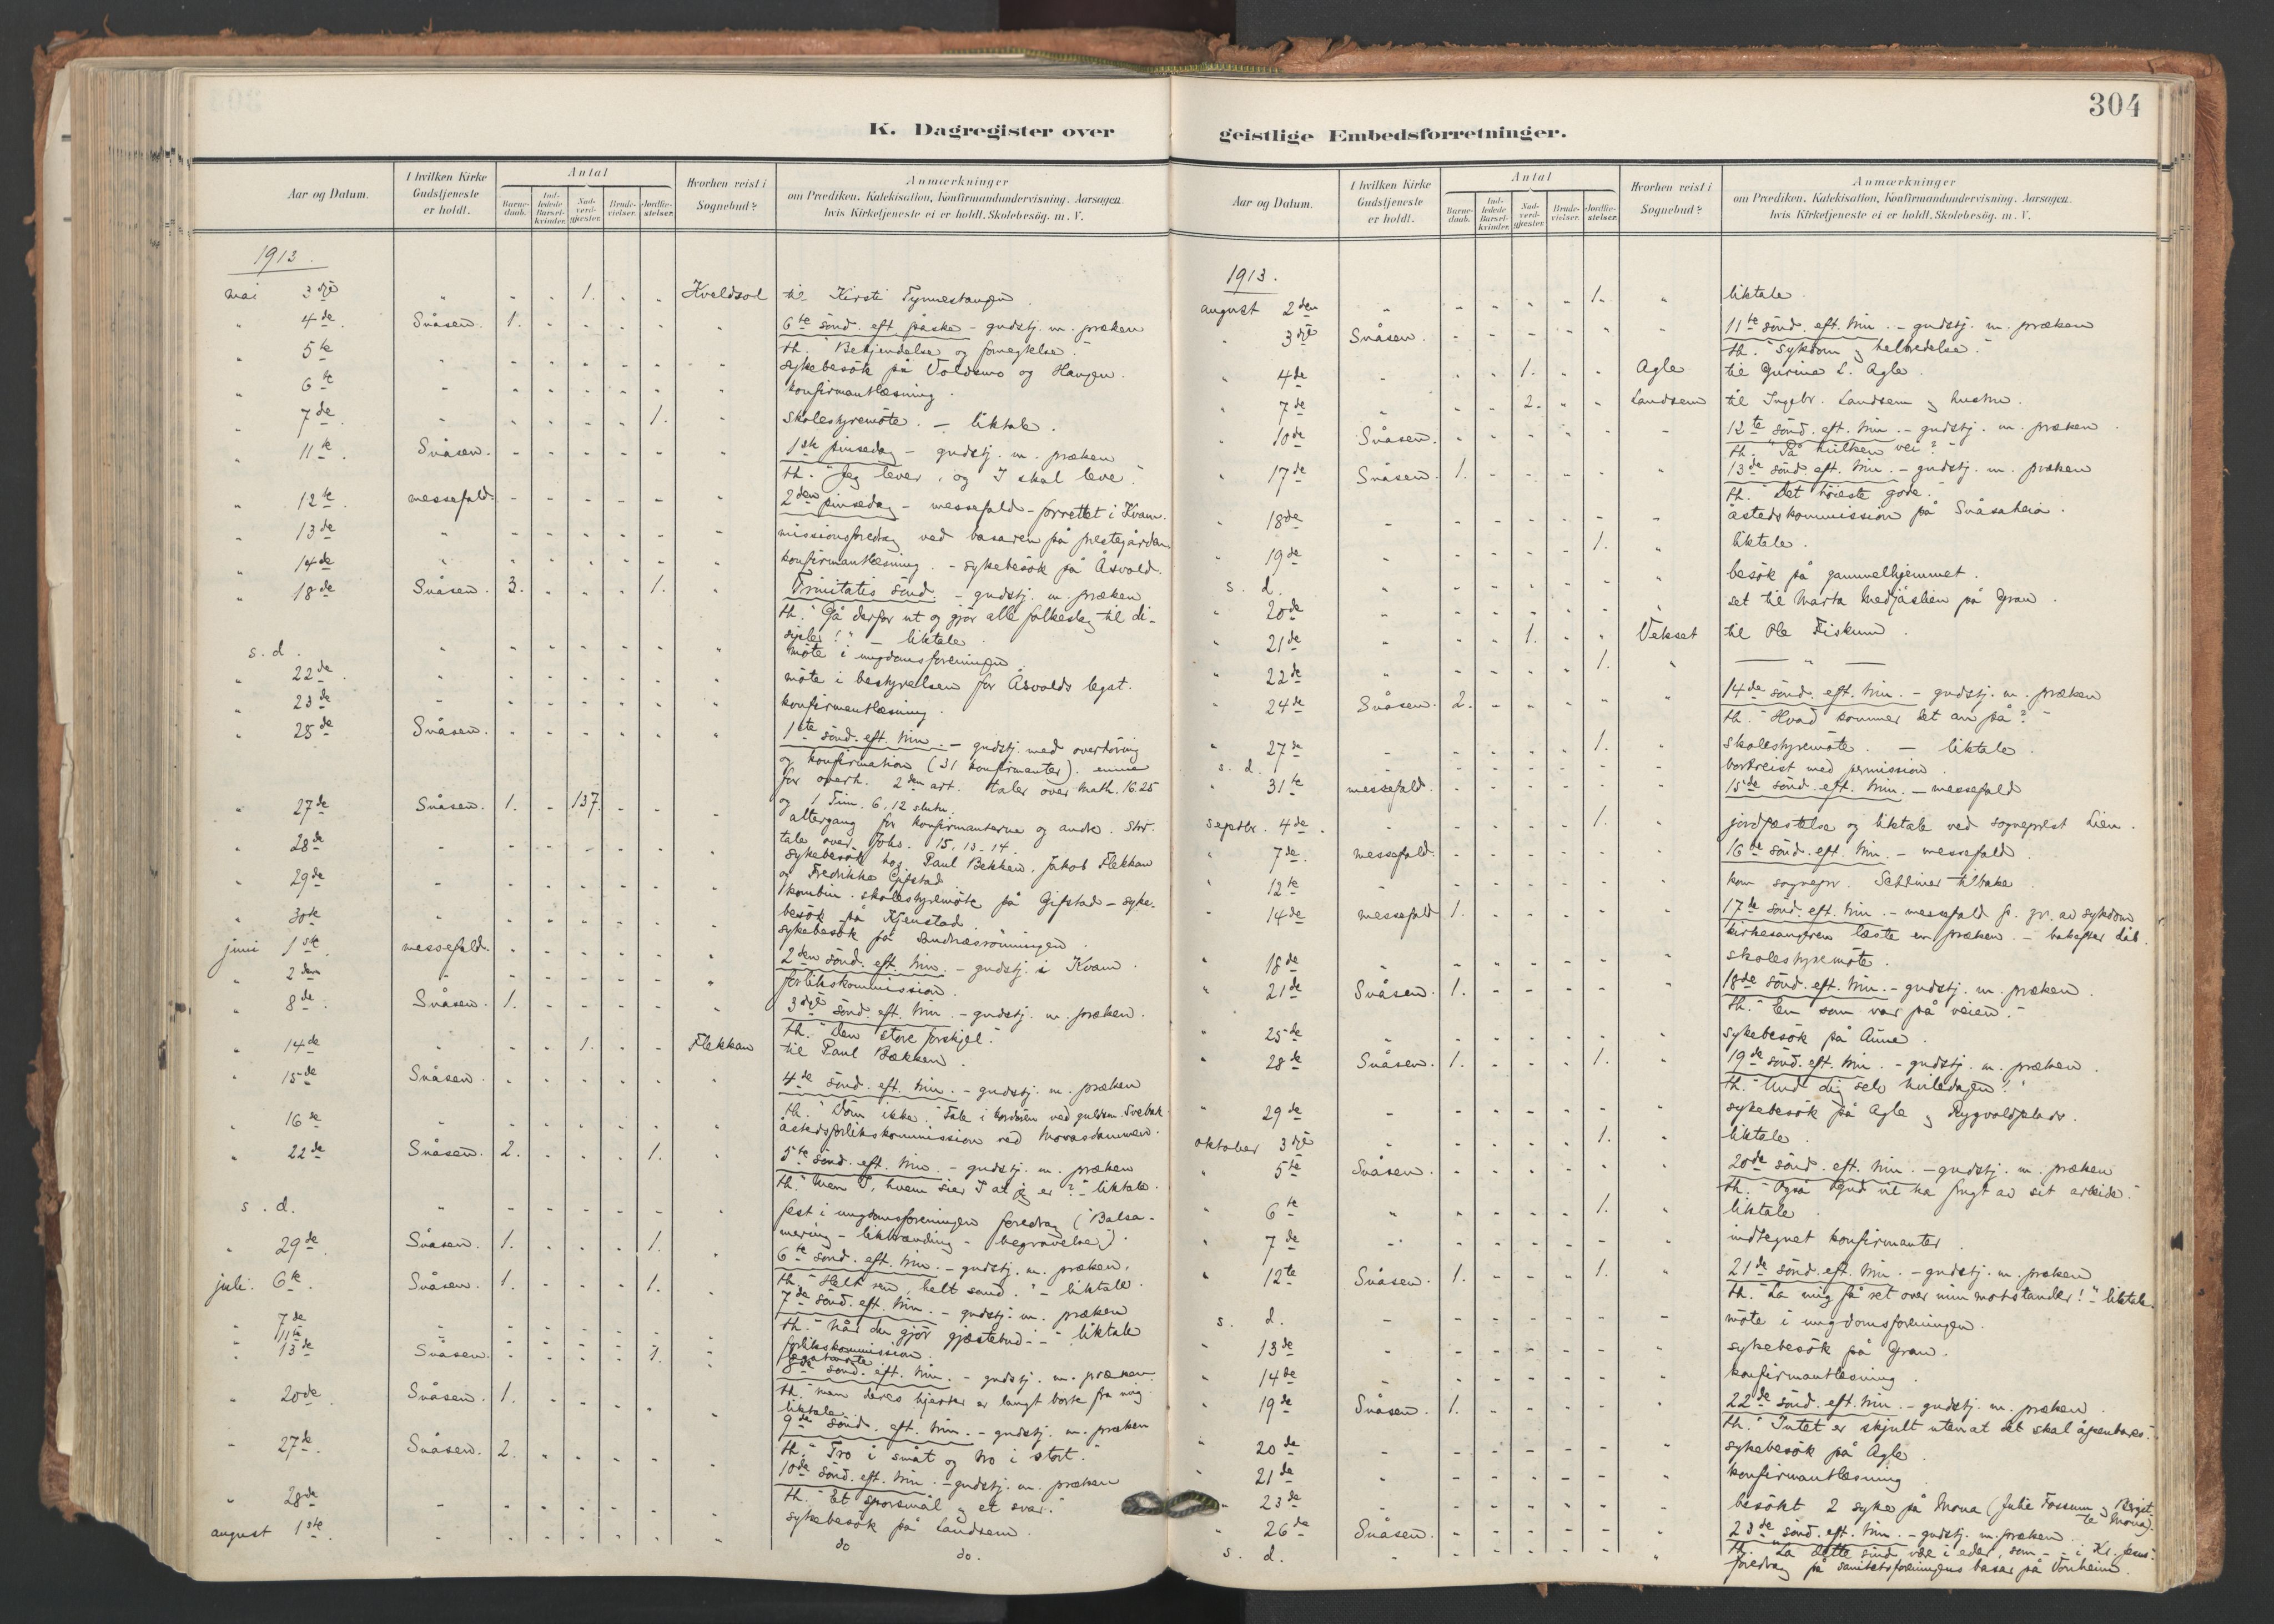 304
K. Dagregister over geistlige Embedsforretninger.
Aar og Datum. I hvilken Kirke Gudstjeneste er holdt. Antal Barnedaab. Indledede Barselkvinder. Nadverdgjester. Brudevielser. Jordfæstelser. Hvorhen reist i Sognebud? Anmærkninger om Prædiken. Katekisation, Konfirmandundervisning. Aarsagen hvis Kirketjeneste ei er holdt. Skolebesög. m. V.
1913.
mai 3dje " - - 1. - - Kveldsol til Kirsti Tynnestangen
" 4de Snåsen. 1. - - - - " 6te sönd. eft. påske - gudstj. m. præken
th. "Bekjendelse og fornegtelse."
" 5te - - - - - - - sykebesök på Voldsmo og Haugen.
" 6te - - - - - - - konfirmantlæsning.
" 7de - - - - - 1. " skolestyremöte. - liktale.
" 11te Snåsen. - - - - - " 1ste pinsedag - gudstj. m. præken
th. "Jeg lever, og I skal leve."
" 12te messefald. - - - - - " 2den pinsedag - messefald - forrettet i Kvam.
" 13de " - - - - - - missionsforedrag ved basaren på prestegården
" 14de " - - - - - - konfirmantlæsning. - sykebesök på Åsvold.
" 18de Snåsen. 3. - - - 1. " Trinitatis sönd. - gudstj. m. præken
th. "Gå derfor ut og gjör alle folkeslag til disipler!" - liktale.
s. d. " - - - - - " möte i ungdomsforeningen
" 22de " - - - - - " möte i bestyrelsen for Åsvolds legat.
" 23de - - - - - - " konfirmantlæsning.
" 25de Snåsen. - - - - - " 1ste sönd. eft. trin. - gudstj. med overhöring
og konfirmation (31 konfirmanter). emne
for overh. 2den art. taler over Math. 16.25
og 1 Tim. 6, 12 slutn.
" 27de Snåsen. 1. - 137. - - - altergang for konfirmanterne og andre. Skr.
tale over Johs. 15, 13-14.
" 28de - - - - - - " sykebesök hos Paul Bekken, Jakob Flekkan
og Fredrikke Gifstad
" 29de - - - - - - " kombin. skolestyremöte på Gifstad - sykebesök på Kjenstad
" 30te " - - - - - " sykebesök på
juni 1ste messefald. - - - - - " 2den sönd. eft. trin. - gudstj. i Kvam.
" 2den " - - - - - " forlikskommission.
" 8de Snåsen. 1. - - - - " 3dje sönd. eft. trin. - gudstj. m. præken.
th. "Den store forskjel."
" 14de " - - 1. - - Flekkan til Paul Bækken.
" 15de Snåsen. - - - - - " 4de sönd. eft. trin. - gudstj. m. præken
th. "Döm ikke."
" 16de " - - - - - " åstedsforlikskommission ved
" 22de Snåsen. 2. - - - 1. " 5te sönd. eft. trin. - gudstj. m. præken
th. "Men I, hvem sier I at jeg er?" liktale.
s. d. " - - - - - " fest i ungdomsforeningen foredrag ("Balsamering - likbrænding - begravelse").
" 29de Snåsen. 1. - - - 1. " 6te sönd. eft. trin. - gudstj. m. præken.
th. "Helt ren, helt sand." - liktale.
juli. 6te Snåsen. 1. - - - 1. " 7de sönd. eft. trin. - gudstj. m. præken
th. "Når du gjör gjæstebud - -" liktale
" 7de " - - - - - - forlikskommission.
" 11te " - - - - - - legatmöte
" 13de Snåsen. - - - - 1. " 8de sönd. eft. trin. - gudstj. m. præken.
th. "men deres hjerter er langt borte fra mig.
liktale.
" 20de Snåsen. 1. - - - - " 9de sönd. eft. trin. - gudstj. m. præken
th. "Tro i småt og tro i stort."
" 27de Snåsen. 2. - - - - " 10de sönd. eft. trin. - gudstj. m. præken
th. "Et spörsmål og et svar."
" 28de - - - - - - - sykebesök på Landsem.
august 1ste - - - - - - " do do.
Aar og Datum. I hvilken Kirke Gudstjeneste er holdt. Antal Barnedaab. Indledede Barselkvinder. Nadverdgjester. Brudevielser. Jordfæstelser. Hvorhen reist i Sognebud? Anmærkninger om Prædiken. Katekisation, Konfirmandundervisning. Aarsagen hvis Kirketjeneste ei er holdt. Skolebesög. m. V.
1913.
august 2den " - - - - 1. " liktale.
" 3dje Snåsen. - - - - - " 11te sönd. eft. trin. - gudstj. m. præken
th. "sykdom og helbredelse."
" 4de - - - 1. - - Agle til Gurina L. Agle.
" 7de " - - 2. - - Landsem til Ingebr. Landsem og hustru.
" 10de Snåsen. - - - - - - 12te sönd. eft. trin. - gudstj. m. præken.
th. "På hvilken vei?"
" 17de Snåsen. 1. - - - - " 13de sönd. eft. trin. - gudstj. m. præken
th. "Det höieste gode."
" 18de - - - - - - - åstedskommission på Snåsaheia.
" 19de - - - - - 1. " liktale.
s. d. " - - - - - " besök på gammelhjemmet.
" 20de " - - - - - " set til Marta Medjåslien på Gran.
" 21de " - - 1. - - Vekset til Ole Fiskum.
" 22de " - - - - 1. " — " —
" 24de Snåsen. 2. - - - - " 14de sönd. eft. trin. - gudstj. m. præken
th. "Hvad kommer det an på?"
" 27de - - - - - 1. " skolestyremöte. - liktale.
s. d. - - - - - - - bortreist med permission.
" 31te messefald. - - - - - " 15de sönd. eft. trin. - messefald
septbr. 4de - - - - - 1. " jordfæstelse og liktale ved sogneprest Lien.
" 7de messefald. - - - - - " 16de sönd. eft. trin. - messefald.
" 12te " - - - - - " kom sognepr. tilbake.
" 14de messefald 1. - - - - " 17te sönd. eft. trin. - messefald p. gr. av sykdom
kirkesangeren læste en præken. - bakefter dåb.
" 18de " - - - - - " skolestyremöte.
" 21de Snåsen. 1. - - - - " 18de sönd. eft. trin. - gudstj. m. præken.
th. "En som var på veien."
" 25de " - - - - - " sykebesök på Aune.
" 28de Snåsen. 1. - - - 1. " 19de sönd. eft. trin. - gudstj. m. præken.
th. "Und dig selv hviledagen!"
" 29de - - - - - - " sykebesök på Agle og Rygvoldplads.
oktober 3dje " - - - - 1. " liktale.
" 5te Snåsen. - - - - - " 20de sönd. eft. trin. - gudstj. m. præken
th. "Også Gud vil ha frugt av sit arbeide."
" 6te " - - - - 1. " liktale
" 7de - - - - - - " indtegnet konfirmanter.
" 12te Snåsen. 1. - - - 1. " 21de sönd. eft. trin. - gudstj. m. præken
th. "La mig få ret over min motstander!" liktale.
s. d. - - - - - - - möte i ungdomsforeningen.
" 13de - - - - - - " sykebesök på Gran.
" 14de - - - - - - " konfirmantlæsning.
" 19de Snåsen. 1. - - - - " 22de sönd. eft. trin. - gudstj. m. præken.
th. "Intet er skjult uten at det skal åpenbares."
" 20de " - - - - - " sykebesök på Agle.
" 21de " - - - - - " konfirmantlæsning
" 23de - - - - - - " besökt 2 syke på Mona (Julie Fossum og Bergitte Mona).
" 26de Snåsen. - - - - - " 23de sönd. eft. trin. - gudstj. m. præken.
th. "La dette sind være i eder, som - - i Kr. Jesus."
s. d. - - - - - - " foredrag på sanitetsforeningens basar på Vonheim.